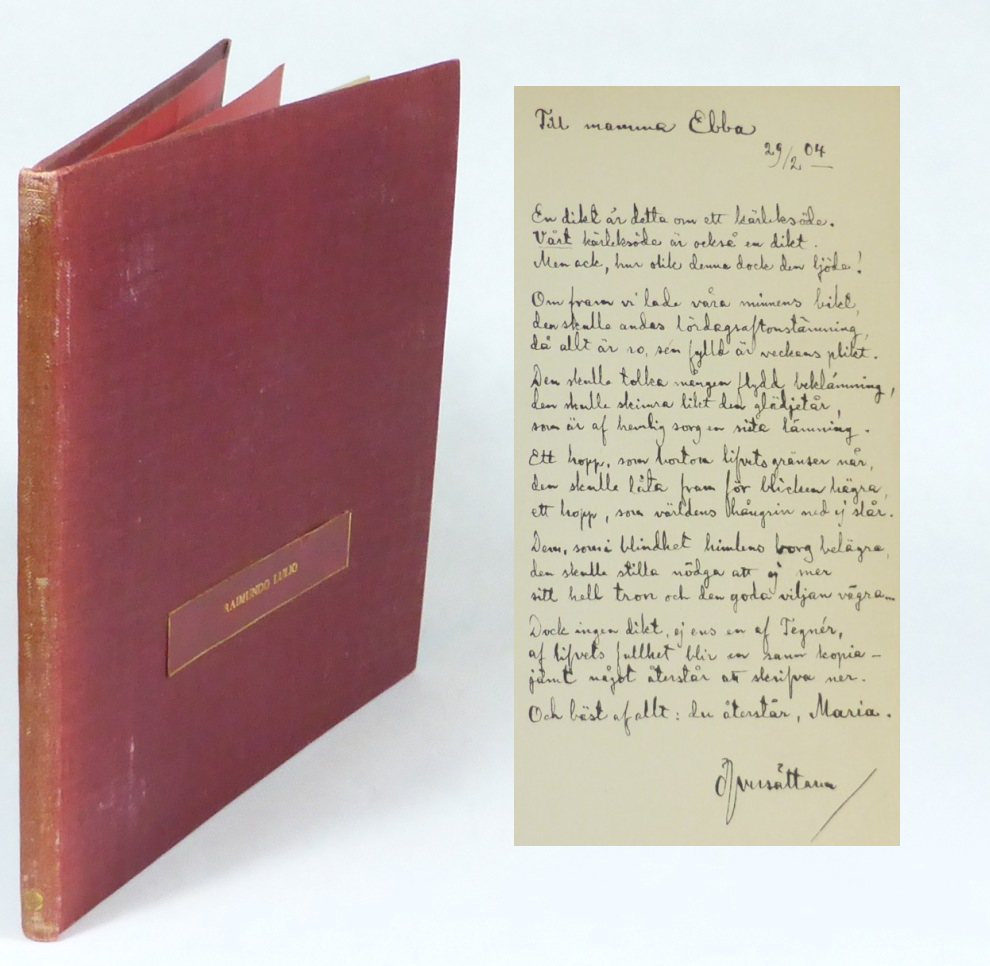 RAIMUNDO LULIO
Till mamma Ebba
29/2 04
En dikt är detta om ett kärleksöde.
Vårt kärleksöde är också en dikt.
Men ack, hur olik denna dock den ljöde!
Om fram vi lade våra minnens bikt,
den skulle andas lördagsaftonstämning,
då allt är ro, sen fylld är veckans plikt.
Den skulle tolka mången flydd beklämning,
den skulle skimra likt den glädjetår,
som är af hemlig sorg en sista lämning.
Ett hopp, som bortom lifvets gränser når,
den skulle låta fram för blicken hägra,
ett hopp, som världens hångrin ned ej slår.
Dem, som i blindhet himlens borg belägra,
den skulle stilla nödga att ej mer
sitt hell tron och den goda viljan vägra...
Dock ingen dikt, ej ens en af Tegnér,
af lifvets fullhet blir en sann kopia –
jämt något återstår att skrifva ner.
Och bäst af allt: du återstår, Maria.
Öfversättaren